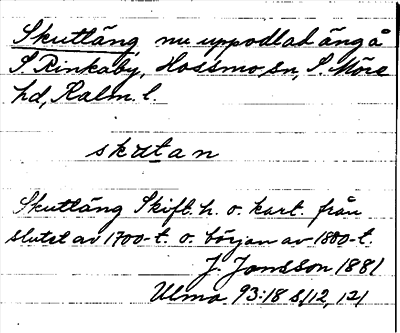 Skutläng, nu uppodlad äng å
S. Rinkaby, Hossmo sn, S. Möre
hd, Kalm. l.
skutan
Skutläng Skift. h. o. kart. från
slutet av 1700-t. o. början av 1800-t.
J. Jonsson 1881
Ulma 93:18 s/12, 121